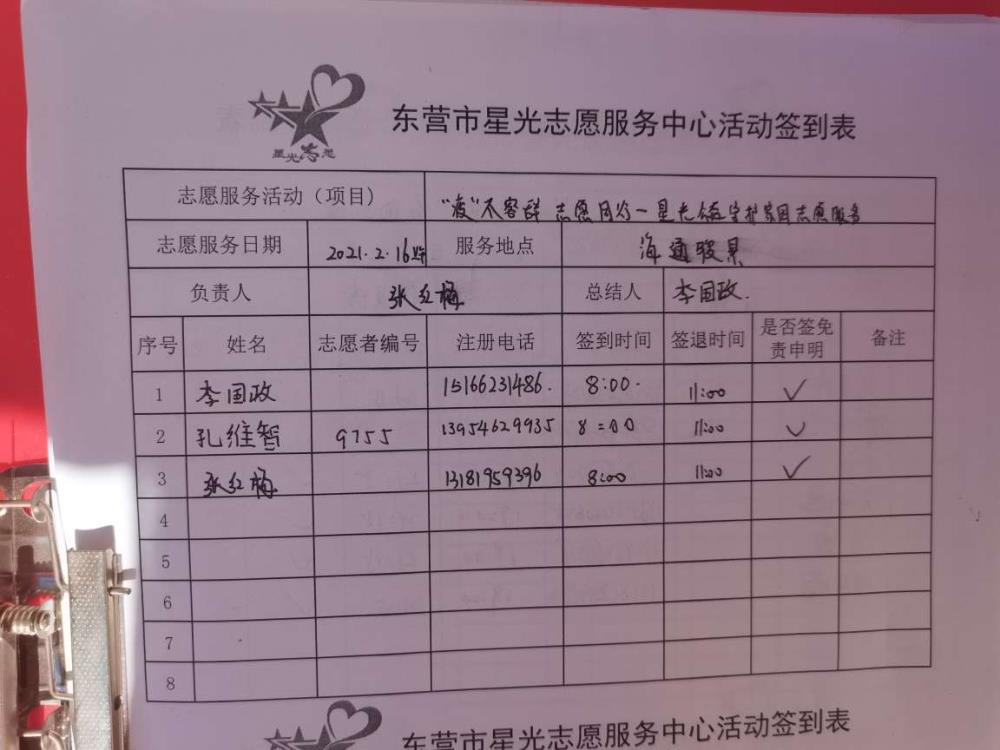 星光志愿
东营市星光志愿服务中心活动签到表
志愿服务活动（项目） “疫”不容辞 志愿同行一星光 守护家园志愿服务
志愿服务日期 2021.2.16 服务地点 海通骏景
负责人 张红梅 总结人 李国政.
序号 姓名 志愿者编号 注册电话 签到时间 签退时间 是否签免责申明 备注
1 李国政 15166231486. 8:00. 11:00 ✓
2 孔维智 9755 13954629935 8:00 11:00 ✓
3 张红梅 13181959396 8:00 11:00 ✓
4
5
6
7
8
东营市星光志愿服务中心活动签到表